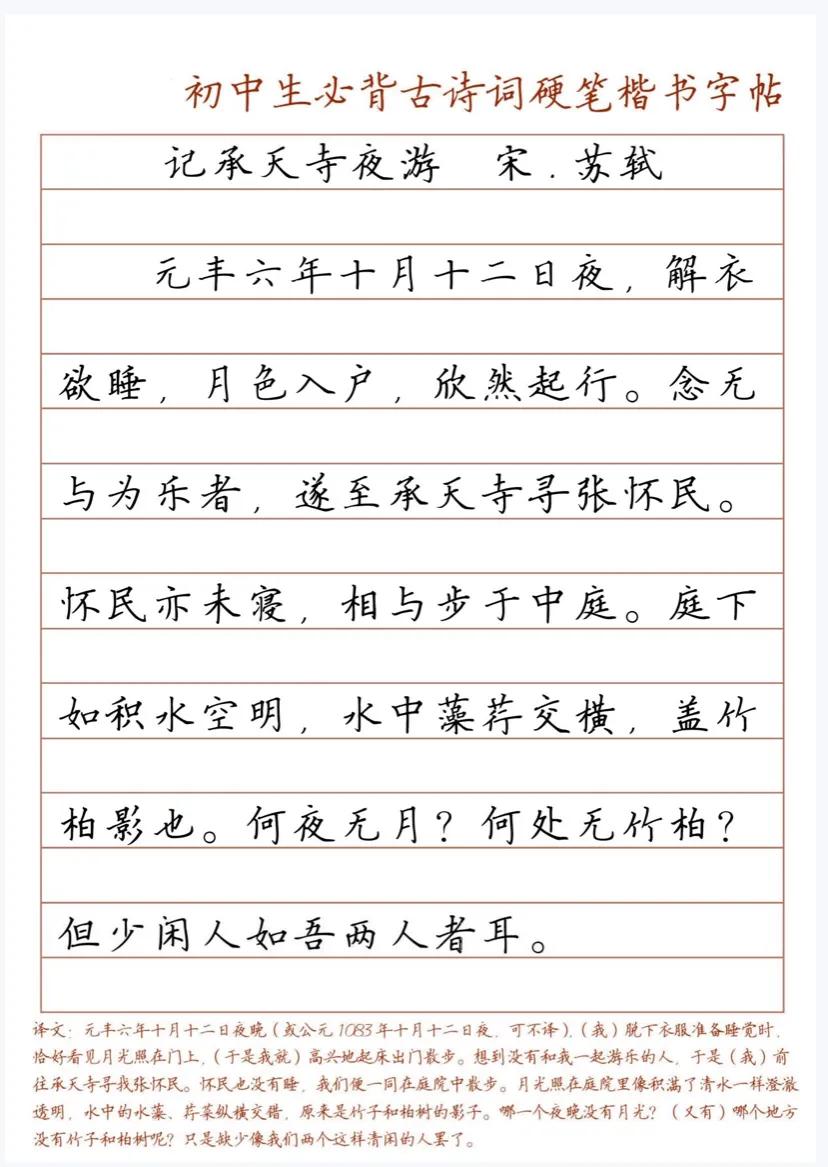 初中生必背古诗词硬笔楷书字帖
记承天寺夜游 宋.苏轼
元丰六年十月十二日夜，解衣
欲睡，月色入户，欣然起行。念无
与为乐者，遂至承天寺寻张怀民。
怀民亦未寝，相与步于中庭。庭下
如积水空明，水中藻荇交横，盖竹
柏影也。何夜无月？何处无竹柏？
但少闲人如吾两人者耳。
译文：元丰六年十月十二日夜晚（或公元1083年十月十二日夜，可不译），（我）脱下衣服准备睡觉时，
恰好看见月光照在门上，（于是我就）高兴地起床出门散步。想到没有和我一起游乐的人，于是（我）前
往承天寺寻我张怀民。怀民也没有睡，我们便一同在庭院中散步。月光照在庭院里像积满了清水一样澄澈
透明，水中的水藻、荇菜纵横交错，原来是竹子和柏树的影子。哪一个夜晚没有月光？（又有）哪个地方
没有竹子和柏树呢？只是缺少像我们两个这样清闲的人罢了。